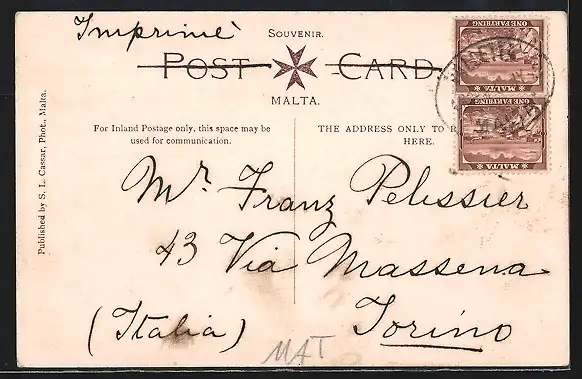 Imprimé
SOUVENIR.
POST CARD.
MALTA.
For Inland Postage only, this space may be
used for communication.
THE ADDRESS ONLY TO
HERE.
ONE FARTHING
MALTA
ONE FARTHING
MALTA
Published by S. L. Cassar, Phot., Malta.
Mr. Franz Pelissier
43 Via Massena
(Italia) Torino
MAT